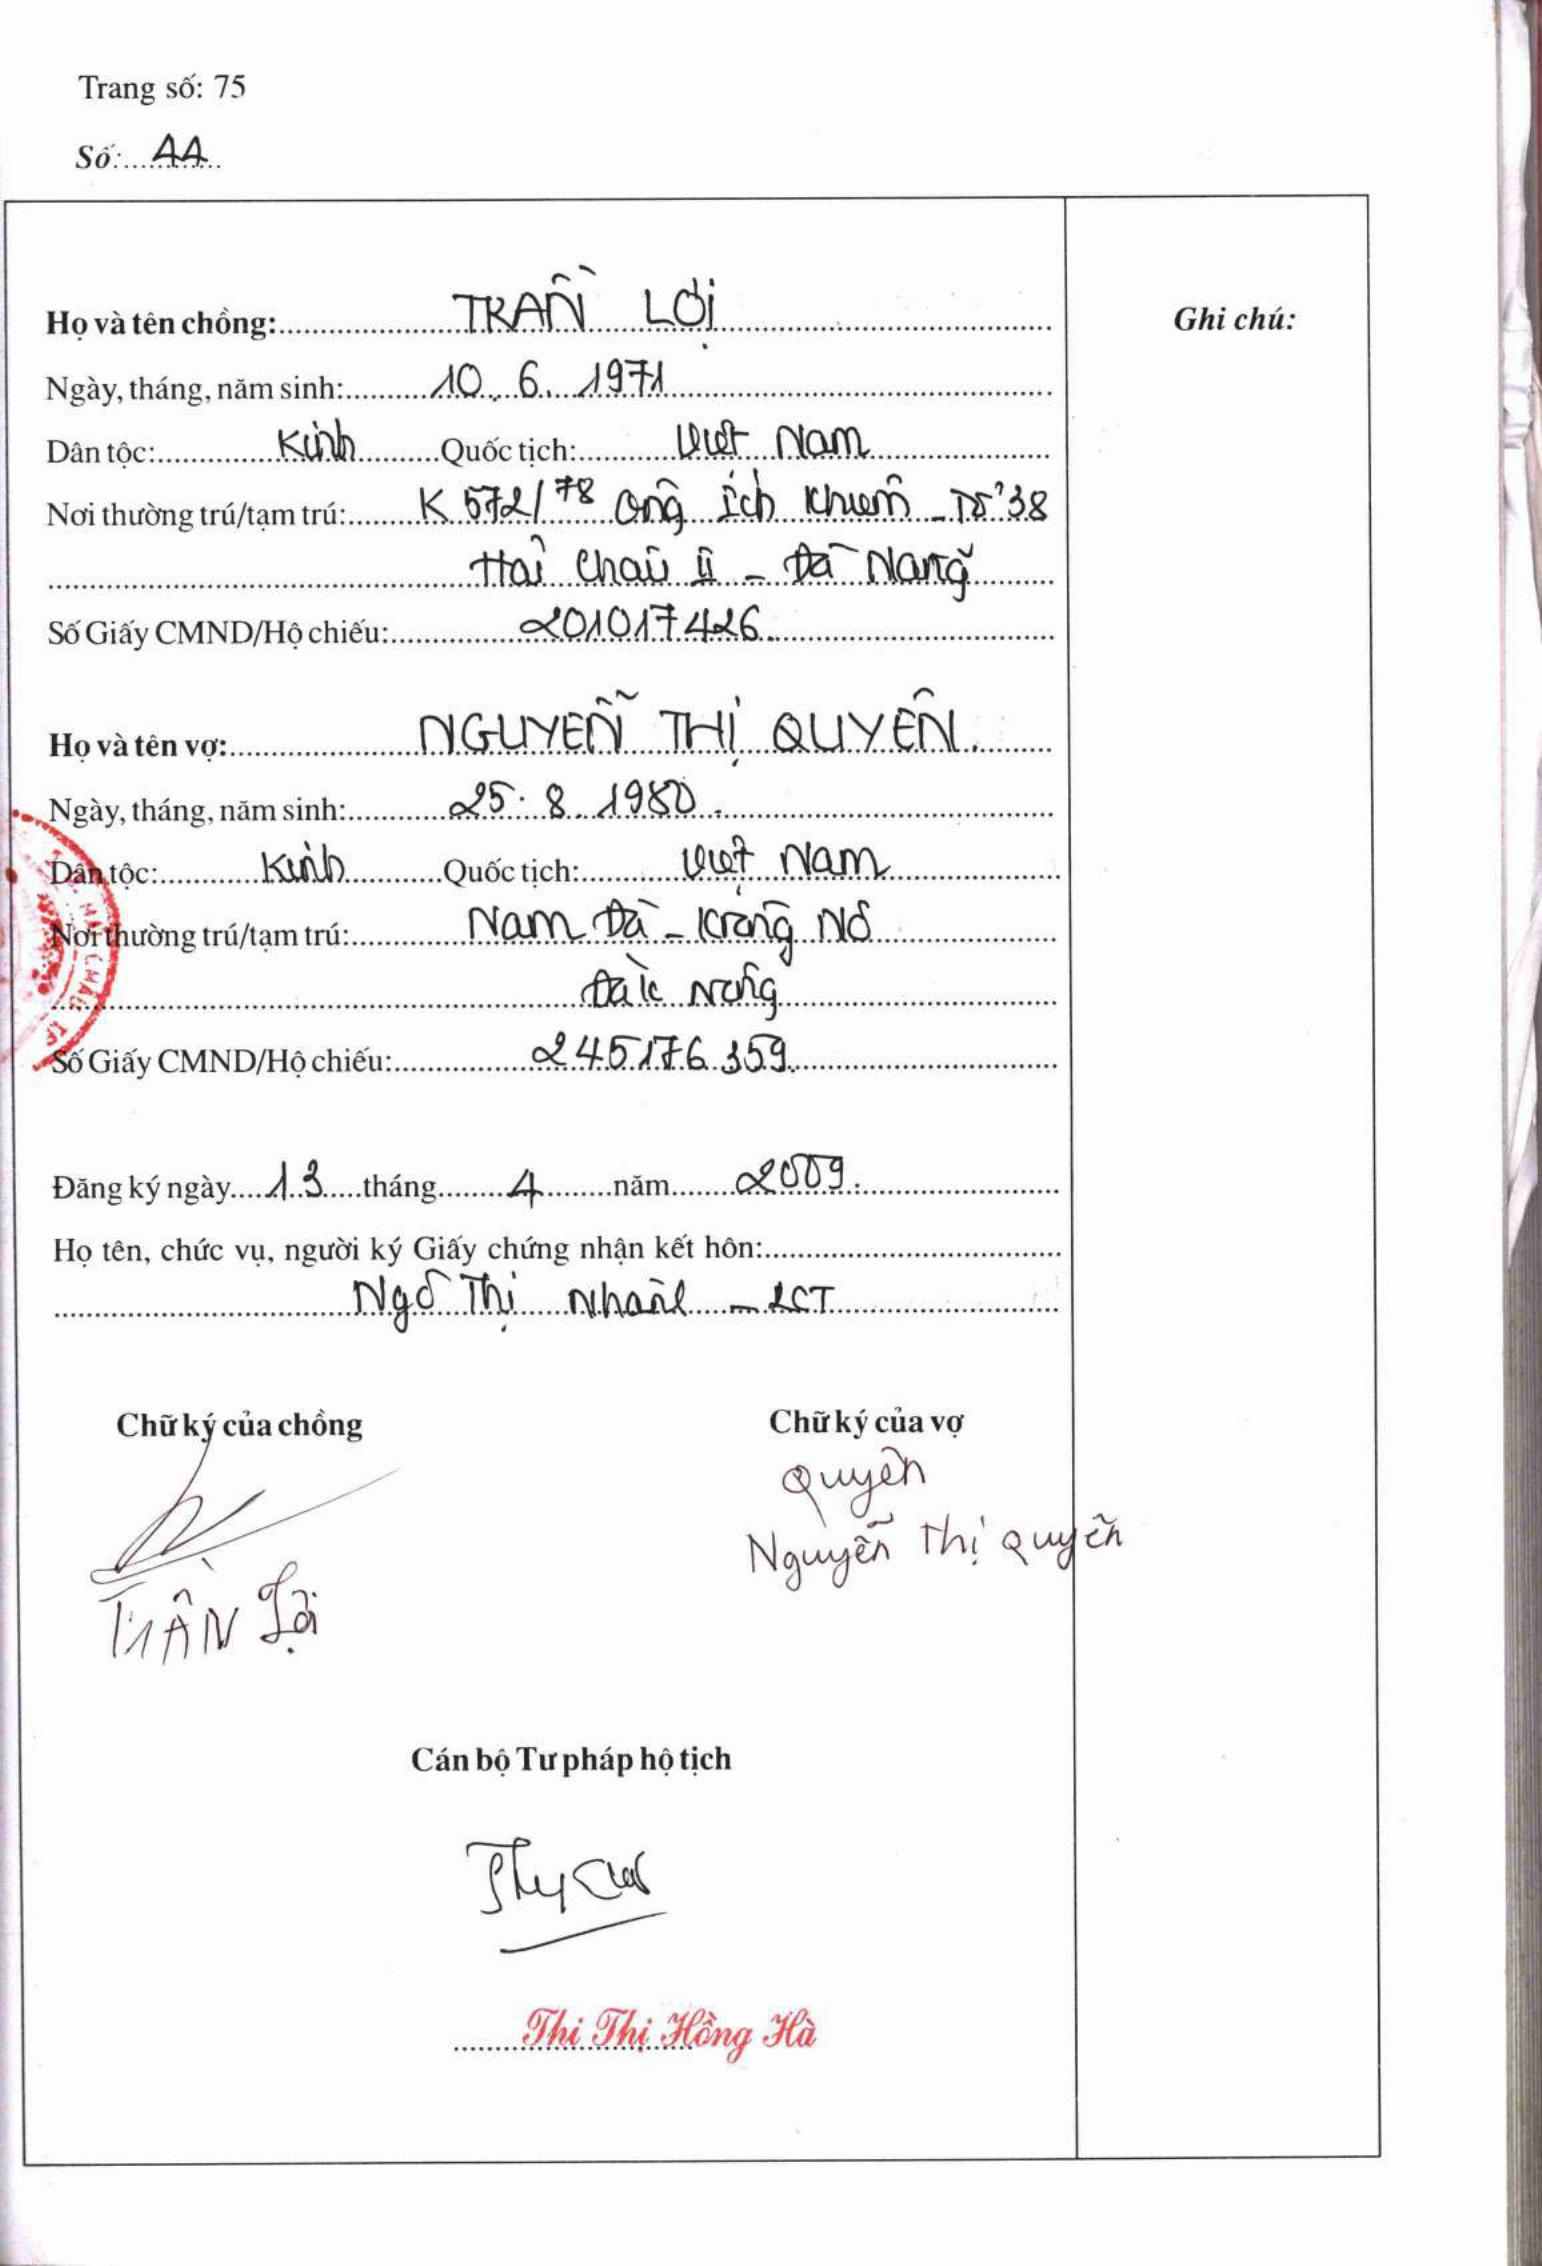 Trang số: 75
Số: 44
Họ và tên chồng: TRẦN LỢI
Ghi chú:
Ngày, tháng, năm sinh: 10. 6. 1971
Dân tộc: Kinh Quốc tịch: Việt Nam
Nơi thường trú/tạm trú: K 572/78 Ông Ích Khiêm - Tổ 38
Hải Châu II - Đà Nẵng
Số Giấy CMND/Hộ chiếu: 201017426
Họ và tên vợ: NGUYỄN THỊ QUYÊN
Ngày, tháng, năm sinh: 25. 8. 1980.
Dân tộc: Kinh Quốc tịch: Việt Nam
Nơi thường trú/tạm trú: Nam Đà - Krông Nô
Đăk Nông
Số Giấy CMND/Hộ chiếu: 245176359
Đăng ký ngày 13 tháng 4 năm 2009.
Họ tên, chức vụ, người ký Giấy chứng nhận kết hôn:
Ngô Thị - PCT
Chữ ký của chồng
Chữ ký của vợ
Quyên
Nguyễn Thị Quyên
TRẦN Lợi
Cán bộ Tư pháp hộ tịch
Thi Thị Hồng Hà